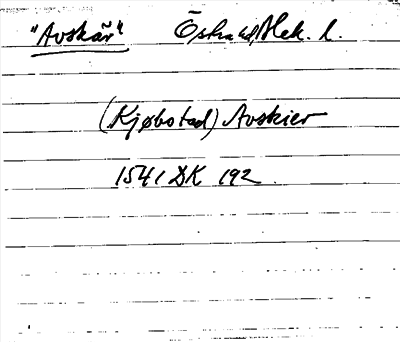 "Avskär" Östra hd, Blek. l.
(Kjøbstad) Avskier
1541 DK 192.